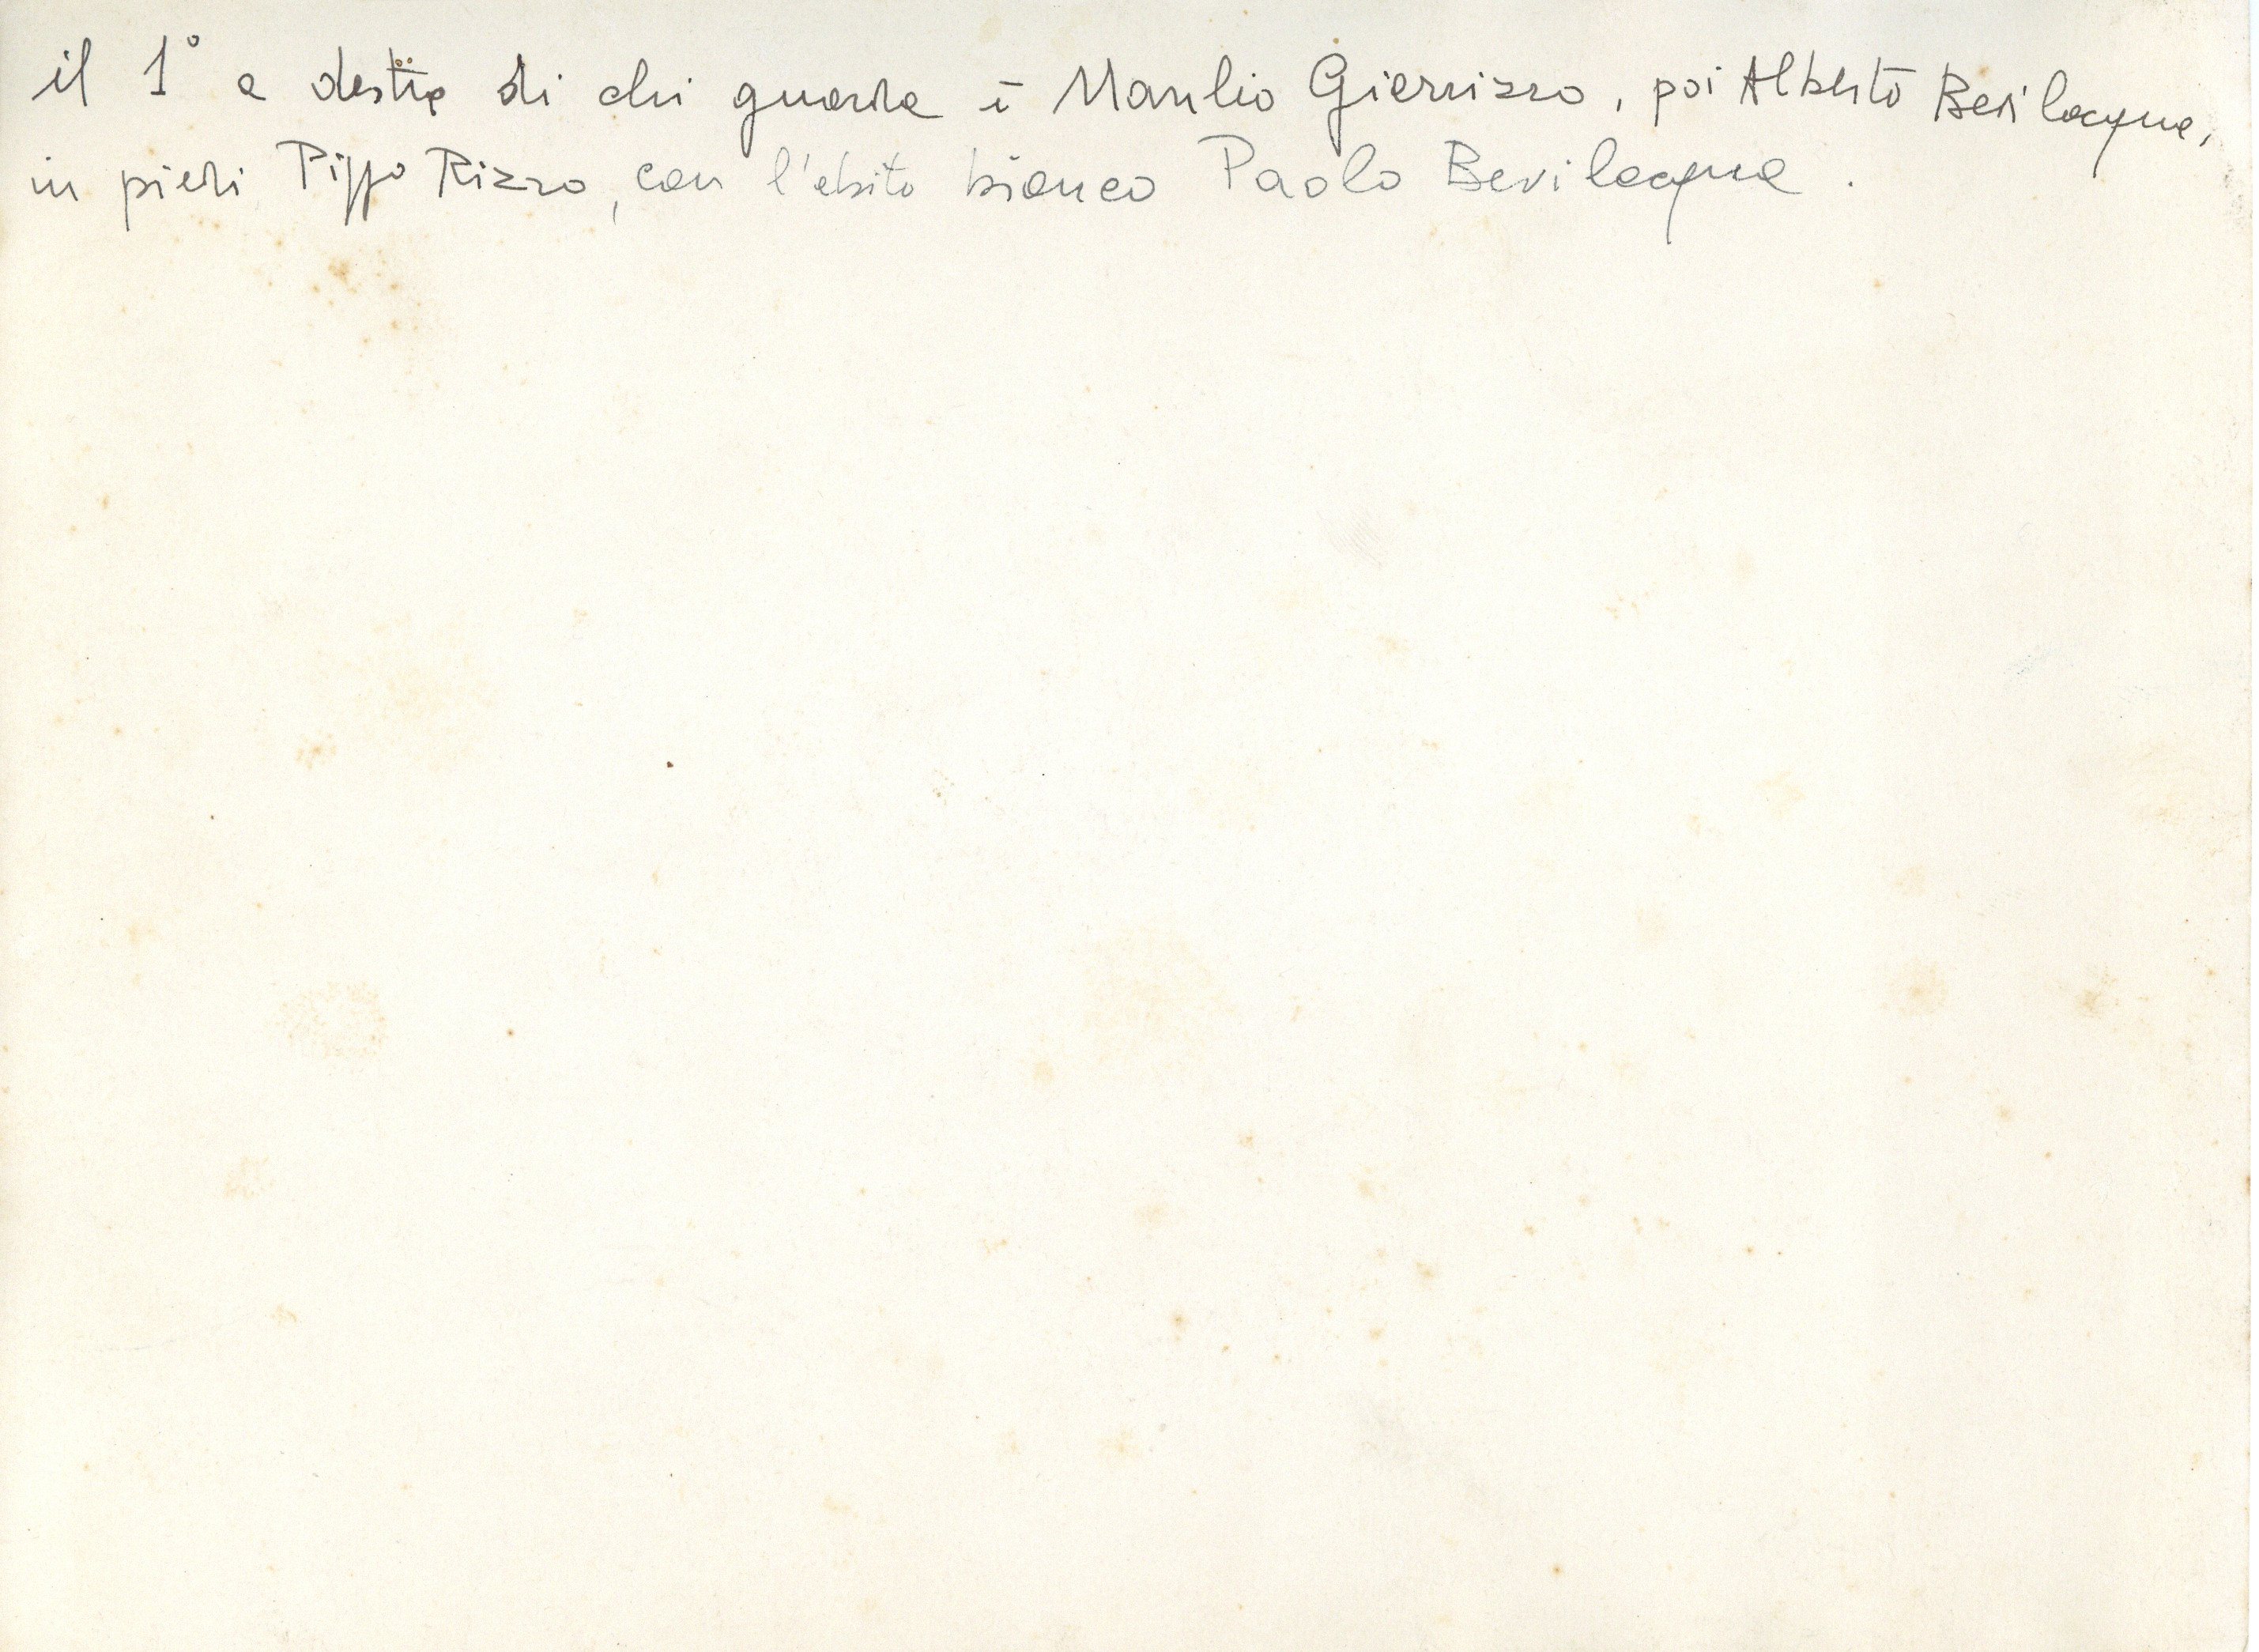 il 1° a destra di chi guarda è Manlio Giarrizzo, poi Alberto Bevilacqua,
in piedi Pippo Rizzo, con l'abito bianco Paolo Bevilacqua.